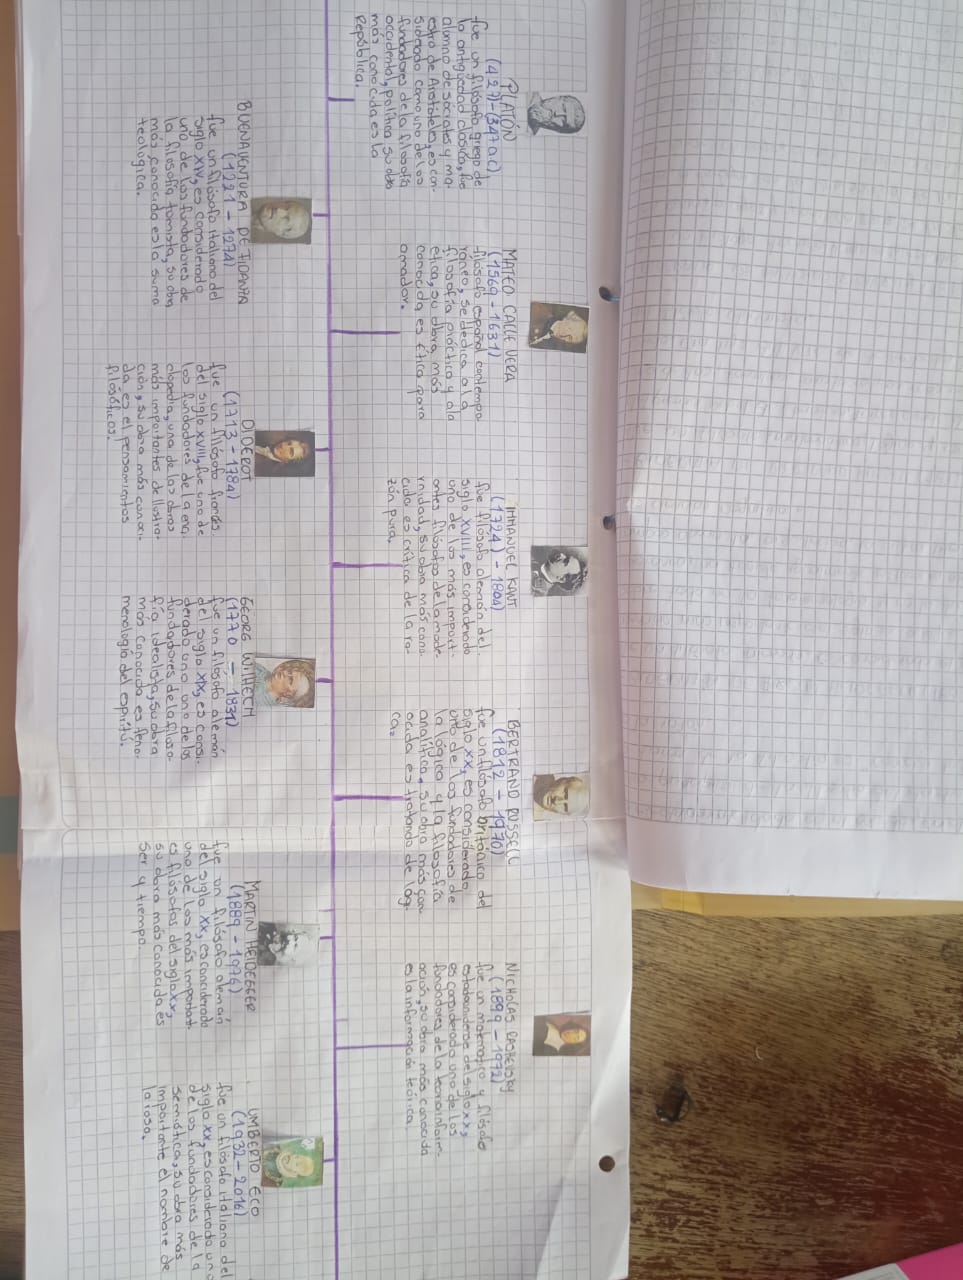 PLATÓN
(427)-(347 a.c)
fue un filósofo griego de
la antigüedad clásica, fue
alumno de sócrates y ma-
estro de Aristóteles, es con-
siderado como uno de los
fundadores de la filosofía
occidental, política su obra
más conocida es la
República.
BUENAVENTURA DE FIDANZA
(1221 - 1274)
fue un filósofo italiano del
siglo XIV, es considerado
uno de los fundadores de
la filosofía tomista, su obra
más conocida es la suma
teológica.
MATEO CALLE VERA
(1569 - 1631)
filósofo español contempo
ráneo, se dedica a la
filosofía práctica y a la
etica, su obra más
conocida es Ética para
amador.
DIDEROT
(1713 - 1784)
fue un filósofo francés.
del siglo XVIII, fue uno de
los fundadores de la enci
clopedia, una de las obras
más importantes de Ilustra-
ción, su obra más conoci-
da es el pensamientos
filosóficos.
IMMANUEL KANT
(1724) - 1804)
fue filósofo alemán del.
siglo XVIII, es considerado
uno de los más import-
antes filósofos de la mode-
rnidad, su obra más cono
cida es crítica de la ra-
zón pura.
GEORG WILHECH
(1770 - 1831)
fue un filósofo alemán
del siglo XIX, es consi-
derado uno uno de los
fundadores de la filoso-
fía idealista, su obra
más conocida es feno-
menología del espíritu.
BERTRAND RUSSELL
(1812 - 1970)
fue un filósofo británico del
siglo XX, es considerado
uno de los fundadores de
la lógica y la filosofía
analítica, su obra más con
ocida es tratando de lógi
ca.
MARTIN HEIDEGGER
(1889 - 1976)
fue un filósofo alemán
del siglo XX, es conciderado
uno de los más important
es filósofos del siglo XX,
su obra más conocida es
ser y tiempo.
NICHOLAS RASHEVSKY
(1899 - 1972)
fue un matemático y filósofo
estadounidense del siglo XX,
es considerado uno de los
fundadores de la teoría inform
ación, su obra más conocida
es la información teórica
UMBERTO ECO
(1932 - 2016)
fue un filósofo italiano del
siglo XX, es considerado uno
de los fundadores de la
semiótica, su obra más
importante el nombre de
la rosa.